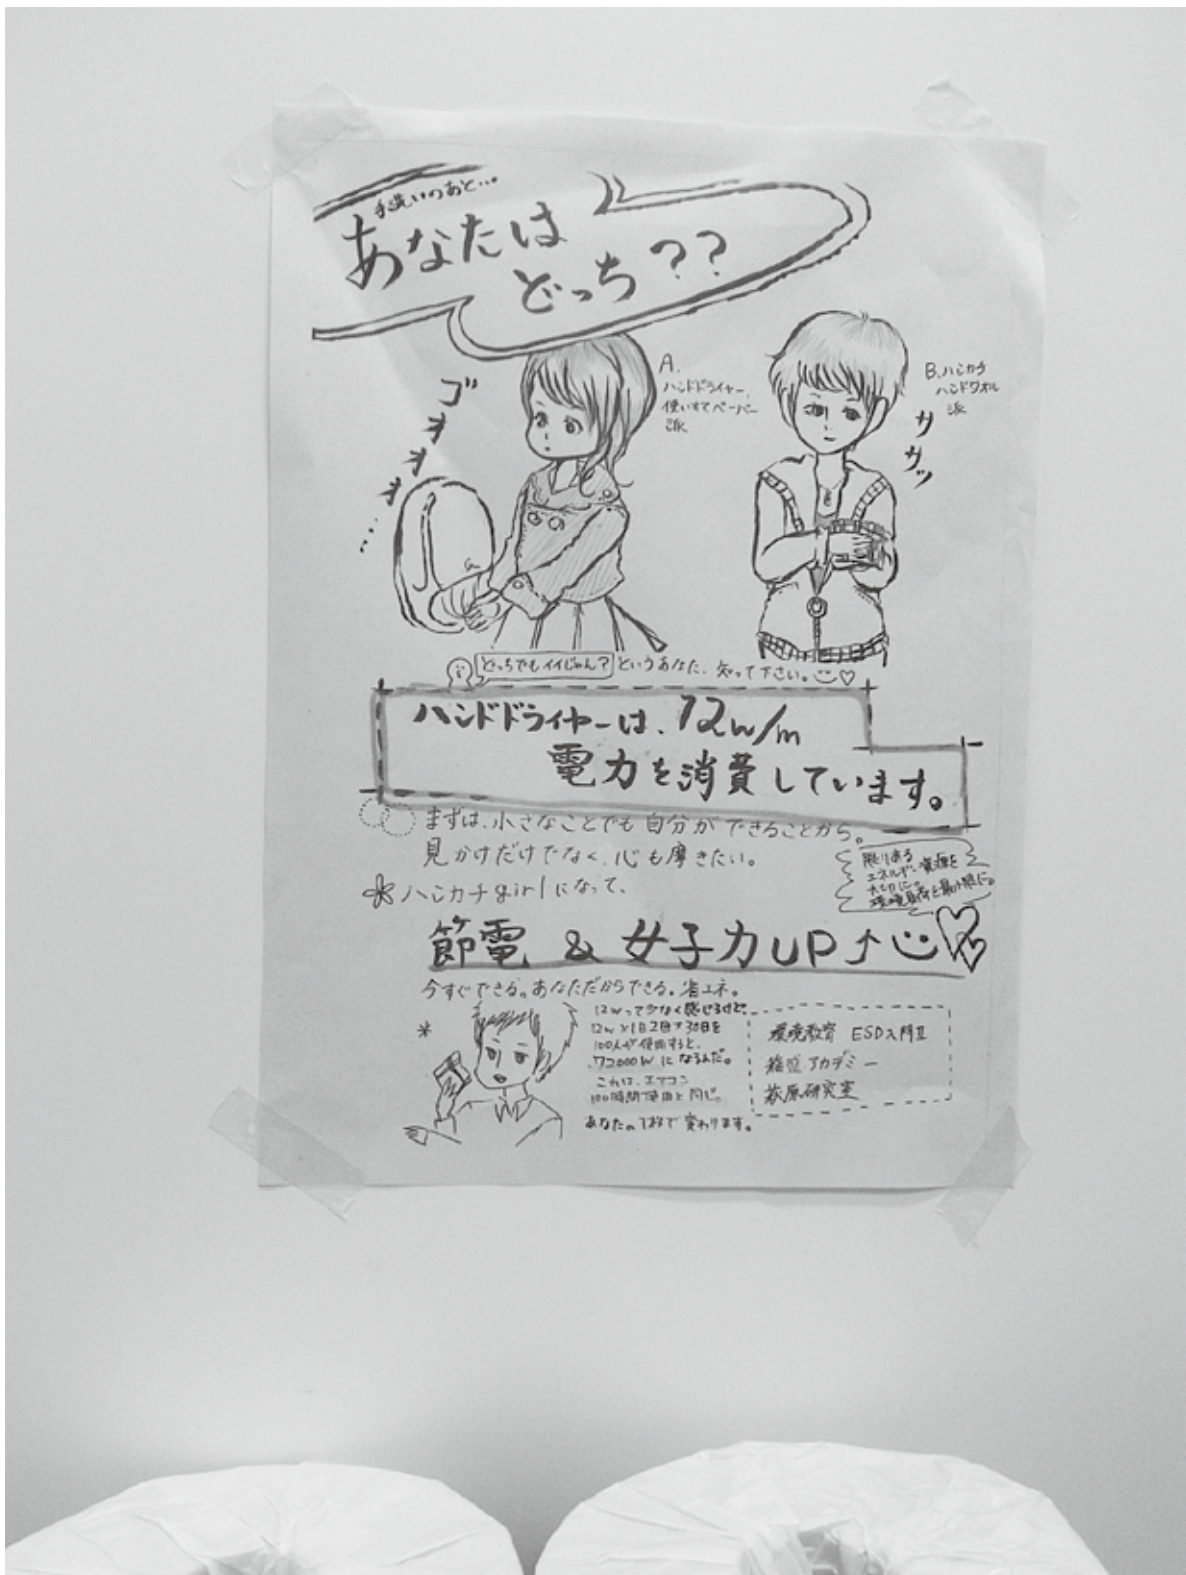 手洗いのあと…。
あなたは
どっち??
A.
ハンドドライヤー、
使いすてペーパー
派
B.ハンカチ
ハンドタオル
派
ゴオオオオ…
ササッ
どっちでもイイじゃん?というあなた、知って下さい。
ハンドドライヤーは、12w/m
電力を消費しています。
まずは、小さなことでも自分ができることから。
見かけだけでなく、心も磨きたい。
限りある
エネルギー資源を
大切に。
環境負荷を最小限に。
ハンカチgirlになって、
節電 & 女子力UP↑
今すぐできる。あなただからできる。省エネ。
12wって少なく感じるけど、
12w×1日2回×30日を
100人が使用すると、
72000wになるんだ。
これは、エアコン
100時間使用と同じ。
あなたの1枚で変わります。
環境教育 ESD入門Ⅱ
稲盛アカデミー
萩原研究室